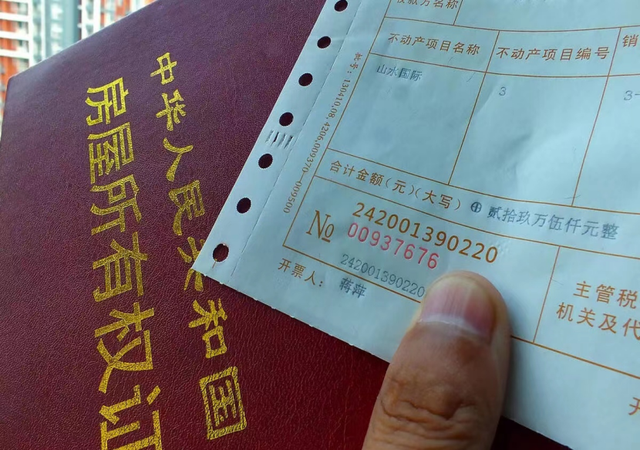 中华人民共和国
房屋所有权证
收款方名称
不动产项目名称 不动产项目编号 销
山水国际 3 3-
合计金额(元)(大写) ⊕ 贰拾玖万伍仟元整
242001390220
No 00937676
242001390220
开票人: 蒋萍
主管税
机关及代
开